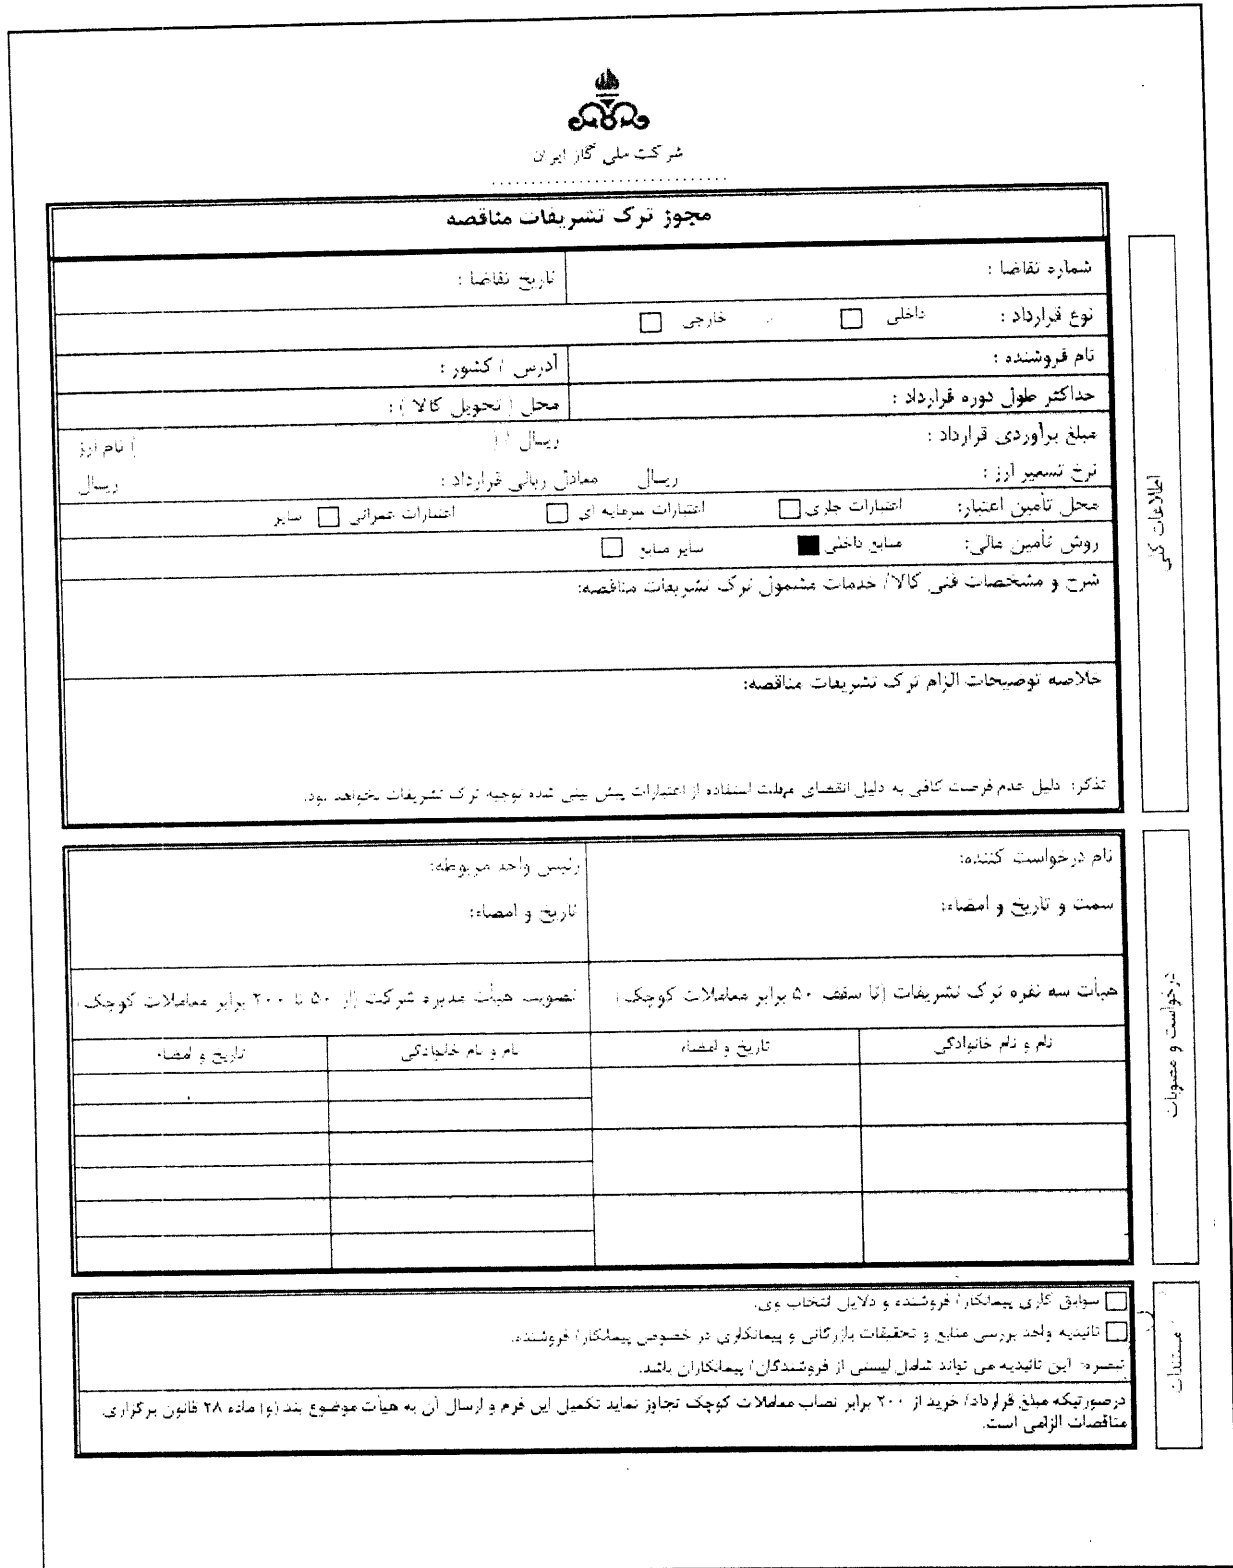 شرکت ملی گاز ایران
............................
مجوز ترک تشریفات مناقصه
شماره تقاضا :
تاریخ تقاضا :
نوع قرارداد : داخلی □ خارجی □
نام فروشنده :
آدرس / کشور :
حداکثر طول دوره قرارداد :
محل ( تحویل کالا ) :
مبلغ برآوردی قرارداد : ریال ( ) نام ارز
نرخ تسعیر ارز : ریال معادل ریالی قرارداد : ریال
محل تأمین اعتبار: اعتبارات جاری □ اعتبارات سرمایه ای □ اعتبارات عمرانی □ سایر
روش تأمین مالی: منابع داخلی ■ سایر منابع □
شرح و مشخصات فنی کالا/ خدمات مشمول ترک تشریفات مناقصه:
خلاصه توضیحات الزام ترک تشریفات مناقصه:
تذکر: دلیل عدم فرصت کافی به دلیل انقضای مهلت استفاده از اعتبارات پیش بینی شده توجیه ترک تشریفات نخواهد بود.
اطلاعات کلی
نام درخواست کننده:
رئیس واحد مربوطه:
سمت و تاریخ و امضاء:
تاریخ و امضاء:
هیأت سه نفره ترک تشریفات (تا سقف ۵۰ برابر معاملات کوچک)
تصویب هیأت مدیره شرکت (از ۵۰ تا ۲۰۰ برابر معاملات کوچک)
نام و نام خانوادگی
تاریخ و امضاء
نام و نام خانوادگی
تاریخ و امضاء
درخواست و مصوبات
□ سوابق کاری پیمانکار/ فروشنده و دلایل انتخاب وی.
□ تائیدیه واحد بررسی منابع و تحقیقات بازرگانی و پیمانکاری در خصوص پیمانکار/ فروشنده.
تبصره: این تائیدیه می تواند شامل لیستی از فروشندگان/ پیمانکاران باشد.
درصورتیکه مبلغ قرارداد/ خرید از ۲۰۰ برابر نصاب معاملات کوچک تجاوز نماید تکمیل این فرم و ارسال آن به هیأت موضوع بند (و) ماده ۲۸ قانون برگزاری
مناقصات الزامی است.
مستندات